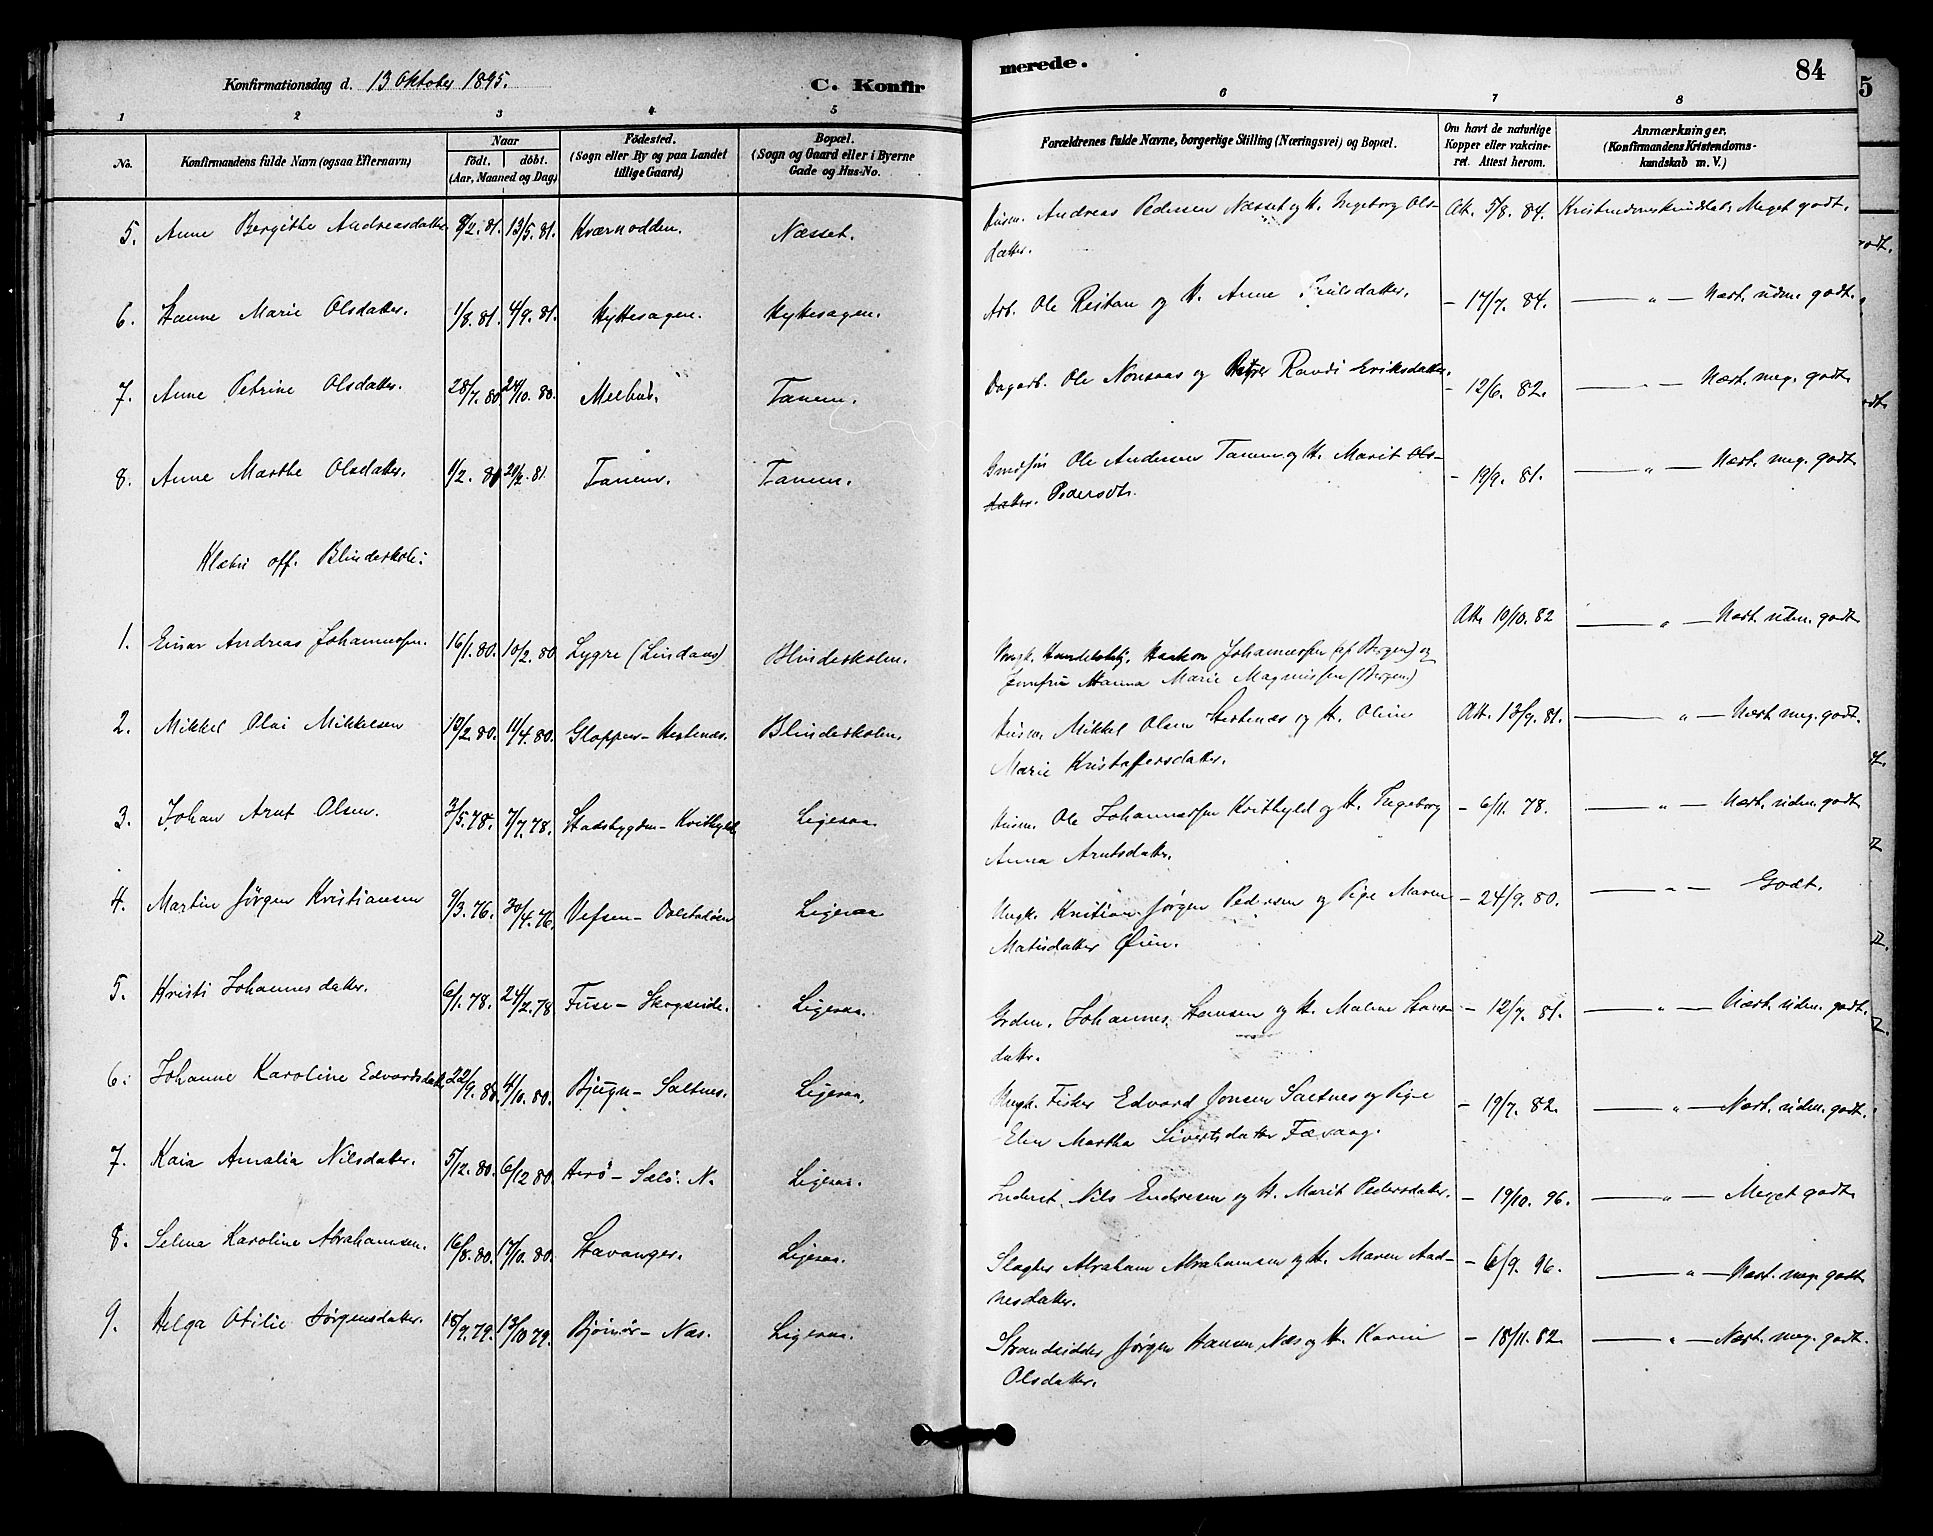 Konfirmationsdag d. 13 Oktober 1895. C. Konfir merede. 84
1 2 3 4 5 6 7 8
No. Konfirmandens fulde Navn (ogsaa Efternavn) Naar födt. döbt. (Aar, Maaned og Dag) Födested. (Sogn eller By og paa Landet tillige Gaard) Bopæl. (Sogn og Gaard eller i Byerne Gade og Hus-No. Forældrenes fulde Navne, borgerlige Stilling (Næringsvei) og Bopæl. Om havt de naturlige Kopper eller vakcineret. Attest herom. Anmærkninger. (Konfirmandens Kristendomskundskab m. V.)
5. Anne Bergithe Andreasdatter 8/2.81. 13/5.81. Kværnodden. Næsset. Husm. Andreas Pedersen Næsset og H. Ingeborg Ols-
datter. Att. 5/8.84. Kristendomskundskab Meget godt.
6. Hanne Marie Olsdatter. 1/8.81. 4/9.81. Hyttesagen. Hyttesagen. Arb. Ole Reitan og H. Anne datter. - 17/7.84. — " — Næst. uden. godt.
7. Anne Petrine Olsdatter. 28/7.80. 24/10.80. Melhus. Tanem. Dagarb. Ole og Randi Eriksdatter. - 12/6.82. — " — Næst. meg. godt
8. Anne Marthe Olsdatter. 1/2.81 20/2.81 Tanem. Tanem. Ole Andersen Tanem og H. Marit Ols-
datter. Pedersdt. - 19/9.81. — " — Næst. meg. godt
Klæbu off. Blindeskole:
1. Einar Andreas Johannesen. 16/1.80. 10/2.80 Lygre (Lindaas) Blindeskolen. Ungk. Haakon Johannesen (af Bergen) og
Jomfru Hanna Marie Magnussen (Bergen) Att. 10/10.82 — " — Næst. uden. godt
2. Mikkel Olai Mikkelsen 12/2.80. 11/4.80. Gloppen - Hestenæs. Blindeskolen. Husm. Mikkel Olsen Hestenæs og H. Oline
Marie Kristoffersdatter. Att. 13/9.81. — " — Næst. meg. godt.
3. Johan Arnt Olsen. 3/5.78. 7/7.78. Stadsbygden - Kvithyld Ligesaa Husm. Ole Johannessen Kvithyld og H. Ingeborg
Anna Arntsdatter. - 6/11.78. — " — Næst. uden. godt
4. Martin Jørgen Kristiansen 9/3.76. 30/4.76. Vefsen - Ligesaa Ungk. Kristian Jørgen Pedersen og Pige Maren
Matisdatter Øien. - 24/9.80. — " — Godt.
5. Kristi Johannesdatter. 6/1.78. 24/2.78 Fuse - Skogseide. Ligesaa. Grdm. Johannes Hansen og H. Malene Hans-
datter. - 12/7.81. — " — Næst. uden. godt.
6. Johanne Karoline Edvardsdatter 22/9.80. 4/10.80. Bjugn - Saltnes. Ligesaa. Ungk. Fisker Edvard Jonsen Saltnes og Pige
Elen Martha Sivertsdatter Fævaag. - 19/7.82. — " — Næst. uden. godt.
7. Kaia Amalia Nilsdatter. 5/12.80. 6/12 80. Herø - Sælø. N. Ligesaa. Inderst. Nils Endresen og H. Marit Pedersdatter. - 19/10.96. — " — Meget godt
8. Selma Karoline Abrahamsen. 16/8.80. 17/10.80. Stavanger. Ligesaa. Slagter Abraham Abrahamsen og H. Maren Aad-
nesdatter. - 6/9.96. — " — Næst. meg. godt
9. Helga Otilie Jørgensdatter. 18/7.79. 13/10 79. Bjørnør - Næs. Ligesaa. Strandsidder Jørgen Hansen Næs og H. Karen
Olsdatter. - 18/11.82. — " — Næst. meg. godt.